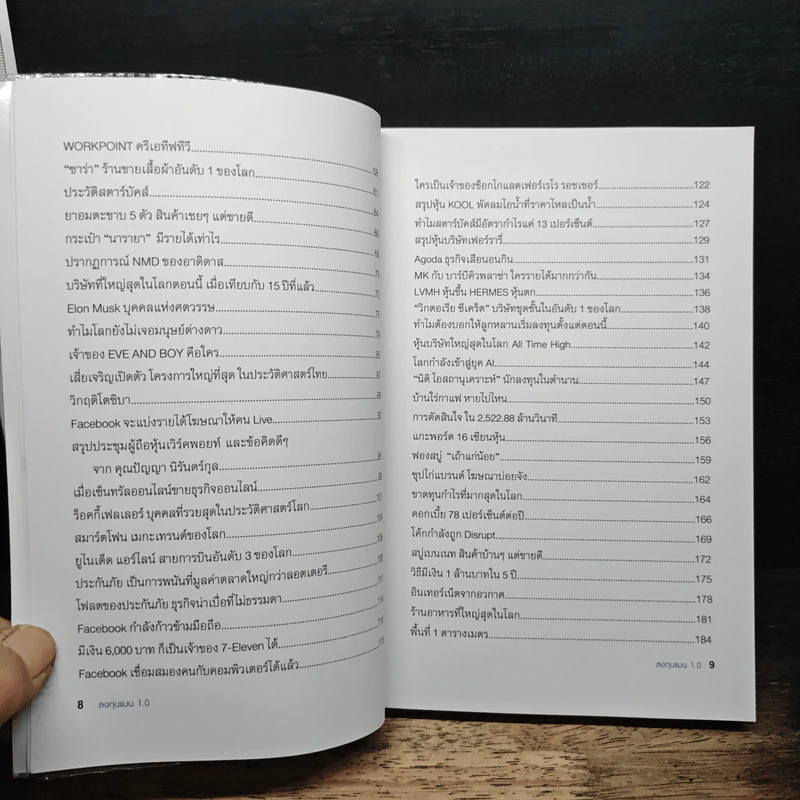 WORKPOINT ครีเอทีฟทีวี....58
"ซาร่า" ร้านขายเสื้อผ้าอันดับ 1 ของโลก....61
ประวัติสตาร์บัคส์....64
ยาอมตะขาบ 5 ตัว สินค้าเชยๆ แต่ขายดี....66
กระเป๋า "นารายา" มีรายได้เท่าไร....68
ปรากฏการณ์ NMD ของอาดิดาส....70
บริษัทที่ใหญ่สุดในโลกตอนนี้ เมื่อเทียบกับ 15 ปีที่แล้ว....72
Elon Musk บุคคลแห่งศตวรรษ....75
ทำไมโลกยังไม่เจอมนุษย์ต่างดาว....76
เจ้าของ EVE AND BOY คือใคร....
เสี่ยเจริญเปิดตัว โครงการใหญ่ที่สุด ในประวัติศาสตร์ไทย....87
วิกฤติโตชิบา....90
Facebook จะแบ่งรายได้โฆษณาให้คน Live....92
สรุปประชุมผู้ถือหุ้นเวิร์คพอยท์ และข้อคิดดีๆ
จาก คุณปัญญา นิรันดร์กุล....95
เมื่อเซ็นทรัลออนไลน์ขายธุรกิจออนไลน์....98
ร็อคกี้เฟลเลอร์ บุคคลที่รวยสุดในประวัติศาสตร์โลก....101
สมาร์ตโฟน เมกะเทรนด์ของโลก....104
ยูไนเต็ด แอร์ไลน์ สายการบินอันดับ 3 ของโลก....108
ประกันภัย เป็นการพนันที่มูลค่าตลาดใหญ่กว่าลอตเตอรี่....111
โฟลตของประกันภัย ธุรกิจน่าเบื่อที่ไม่ธรรมดา....114
Facebook กำลังก้าวข้ามมือถือ....
มีเงิน 6,000 บาท ก็เป็นเจ้าของ 7-Eleven ได้....
Facebook เชื่อมสมองคนกับคอมพิวเตอร์ได้แล้ว....
8 ลงทุนแมน 1.0
ใครเป็นเจ้าของช็อกโกแลตเฟอร์เรโร รอชเชอร์....122
สรุปหุ้น KOOL พัดลมไอน้ำที่ราคาไหลเป็นน้ำ....124
ทำไมสตาร์บัคส์มีอัตรากำไรแค่ 13 เปอร์เซ็นต์....127
สรุปหุ้นบริษัทเฟอร์รารี่....129
Agoda ธุรกิจเสือนอนกิน....131
MK กับ บาร์บีคิวพลาซ่า ใครรายได้มากกว่ากัน....134
LVMH หุ้นขึ้น HERMES หุ้นตก....136
"วิกตอเรีย ซีเคร็ต" บริษัทชุดชั้นในอันดับ 1 ของโลก....138
ทำไมต้องบอกให้ลูกหลานเริ่มลงทุนตั้งแต่ตอนนี้....140
หุ้นบริษัทใหญ่สุดในโลก All Time High....142
โลกกำลังเข้าสู่ยุค AI....144
"นิติ โอสถานุเคราะห์" นักลงทุนในตำนาน....147
บ้านไร่กาแฟ หายไปไหน....150
การตัดสินใจ ใน 2,522.88 ล้านวินาที....153
แกะพอร์ต 16 เซียนหุ้น....156
ฟองสบู่ "เถ้าแก่น้อย"....159
ซุปไก่แบรนด์ โฆษณาบ่อยจัง....162
ขาดทุนกำไรที่มากสุดในโลก....164
ดอกเบี้ย 78 เปอร์เซ็นต์ต่อปี....166
โค้กกำลังถูก Disrupt....169
สบู่เบนเนท สินค้าบ้านๆ แต่ขายดี....172
วิธีมีเงิน 1 ล้านบาทใน 5 ปี....175
อินเทอร์เน็ตจากอวกาศ....178
ร้านอาหารที่ใหญ่สุดในโลก....181
พื้นที่ 1 ตารางเมตร....184
ลงทุนแมน 1.0 9